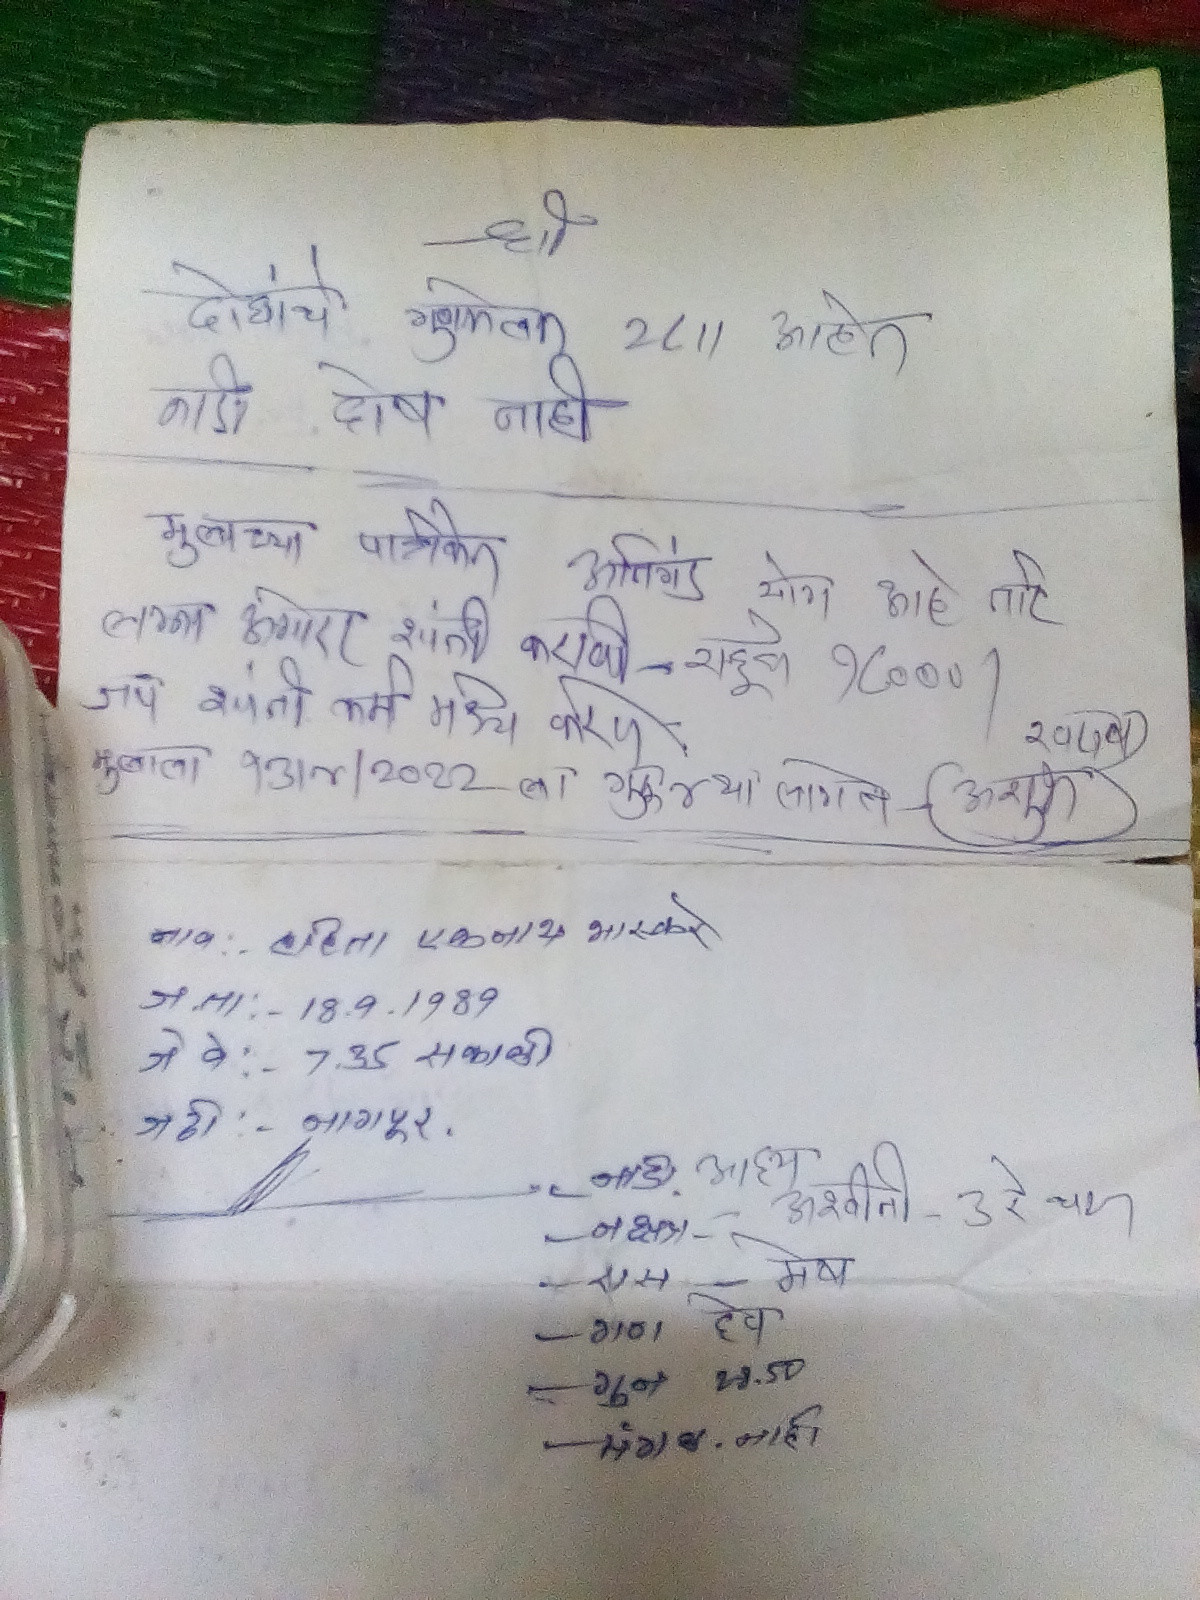 श्री
दोघांचे गुणमेलन २८॥ आहेत
नाडी दोष नाही
मुलाच्या पत्रिकेत अतिगंड योग आहे तरि
लग्ना अगोदर शांती करावी - राहूचे १८०००
जप शांती कर्म मध्ये करणे.
मुलाला १३/४/2022 ला गुरु ४ था लागेल (अशुभ)
नाव:- एकनाथ भास्करे
ज.ता:- 18.9.1989
ज वे:- 7.35 सकाळी
ज ठी:- नागपूर.
- नाडी. आद्य
- नक्षत्र - अश्वीनी - 3 रे चरण
- रास - मेष
- गण देव
- गुन 28.50
- मंगळ. नाही